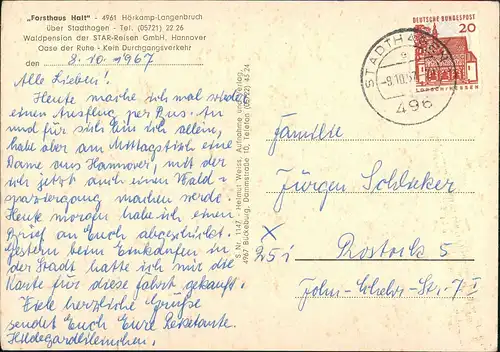 „Forsthaus Halt" - 4961 Hörkamp-Langenbruch
über Stadthagen - Tel. (05721) 22 26
Waldpension der STAR-Reisen GmbH. Hannover
Oase der Ruhe - Kein Durchgangsverkehr
den 8.10.1967
Alle Lieben!
Heute mache ich mal wieder
einen Ausflug per Bus. An
und für sich bin ich allein,
habe aber am Mittagstisch eine
Dame aus Hannover, mit der
ich jetzt auch einen Wald-
spaziergang machen werde.
Heute morgen habe ich einen
Brief an Euch abgeschickt.
Gestern beim Einkaufen in
der Stadt hatte ich mir die
Karte für diese Fahrt gekauft.
Viele herzliche Grüße
sendet Euch Eure Reisetante
Hildegardheinchen.
S. Nr. 1147 Helmut Weiss, Aufnahme und Verlag,
4967 Bückeburg, Dammstraße 10, Telefon (05722) 45 24
STADTHAGEN
-9.10.67
496
DEUTSCHE BUNDESPOST
20
LORSCH/HESSEN
Familie
Jürgen Schlüker
x
25 i
Rostock 5
John-Schehr-Str. 7 I